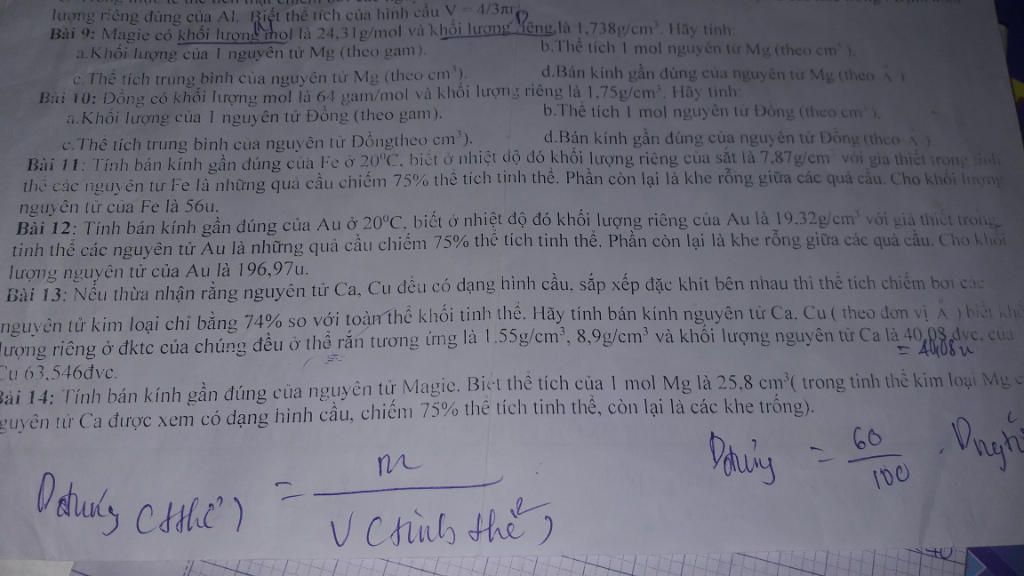 lượng riêng đúng của Al. Biết thể tích của hình cầu V = 4/3πr
Bài 9: Magie có khối lượng mol là 24,31g/mol và khối lượng riêng là 1,738g/cm³. Hãy tính:
a.Khối lượng của 1 nguyên tử Mg (theo gam). b.Thể tích 1 mol nguyên tử Mg (theo cm³).
c.Thể tích trung bình của nguyên tử Mg (theo cm³). d.Bán kính gần đúng của nguyên tử Mg (theo Å)
Bài 10: Đồng có khối lượng mol là 64 gam/mol và khối lượng riêng là 1,75g/cm³. Hãy tính:
a.Khối lượng của 1 nguyên tử Đồng (theo gam). b.Thể tích 1 mol nguyên tử Đồng (theo cm³).
c.Thể tích trung bình của nguyên tử Đồngtheo cm³). d.Bán kính gần đúng của nguyên tử Đồng (theo Å)
Bài 11: Tính bán kính gần đúng của Fe ở 20⁰C, biết ở nhiệt độ đó khối lượng riêng của sắt là 7,87g/cm³ với giả thiết trong tinh
thể các nguyên tử Fe là những quả cầu chiếm 75% thể tích tinh thể. Phần còn lại là khe rỗng giữa các quả cầu. Cho khối lượng
nguyên tử của Fe là 56u.
Bài 12: Tính bán kính gần đúng của Au ở 20⁰C, biết ở nhiệt độ đó khối lượng riêng của Au là 19,32g/cm³ với giả thiết trong
tinh thể các nguyên tử Au là những quả cầu chiếm 75% thể tích tinh thể. Phần còn lại là khe rỗng giữa các quả cầu. Cho khối
lượng nguyên tử của Au là 196,97u.
Bài 13: Nếu thừa nhận rằng nguyên tử Ca, Cu đều có dạng hình cầu, sắp xếp đặc khít bên nhau thì thể tích chiếm bởi các
nguyên tử kim loại chỉ bằng 74% so với toàn thể khối tinh thể. Hãy tính bán kính nguyên tử Ca, Cu ( theo đơn vị Å ) biết khối
lượng riêng ở đktc của chúng đều ở thể rắn tương ứng là 1.55g/cm³, 8,9g/cm³ và khối lượng nguyên tử Ca là 40,08 đvc, của
= 40,08u
Cu 63,546đvc.
Bài 14: Tính bán kính gần đúng của nguyên tử Magie. Biết thể tích của 1 mol Mg là 25,8 cm³( trong tinh thể kim loại Mg
nguyên tử Ca được xem có dạng hình cầu, chiếm 75% thể tích tinh thể, còn lại là các khe trống).
D đúng = 60/100 . D
D đúng (tthể) = m / V (tinh thể)